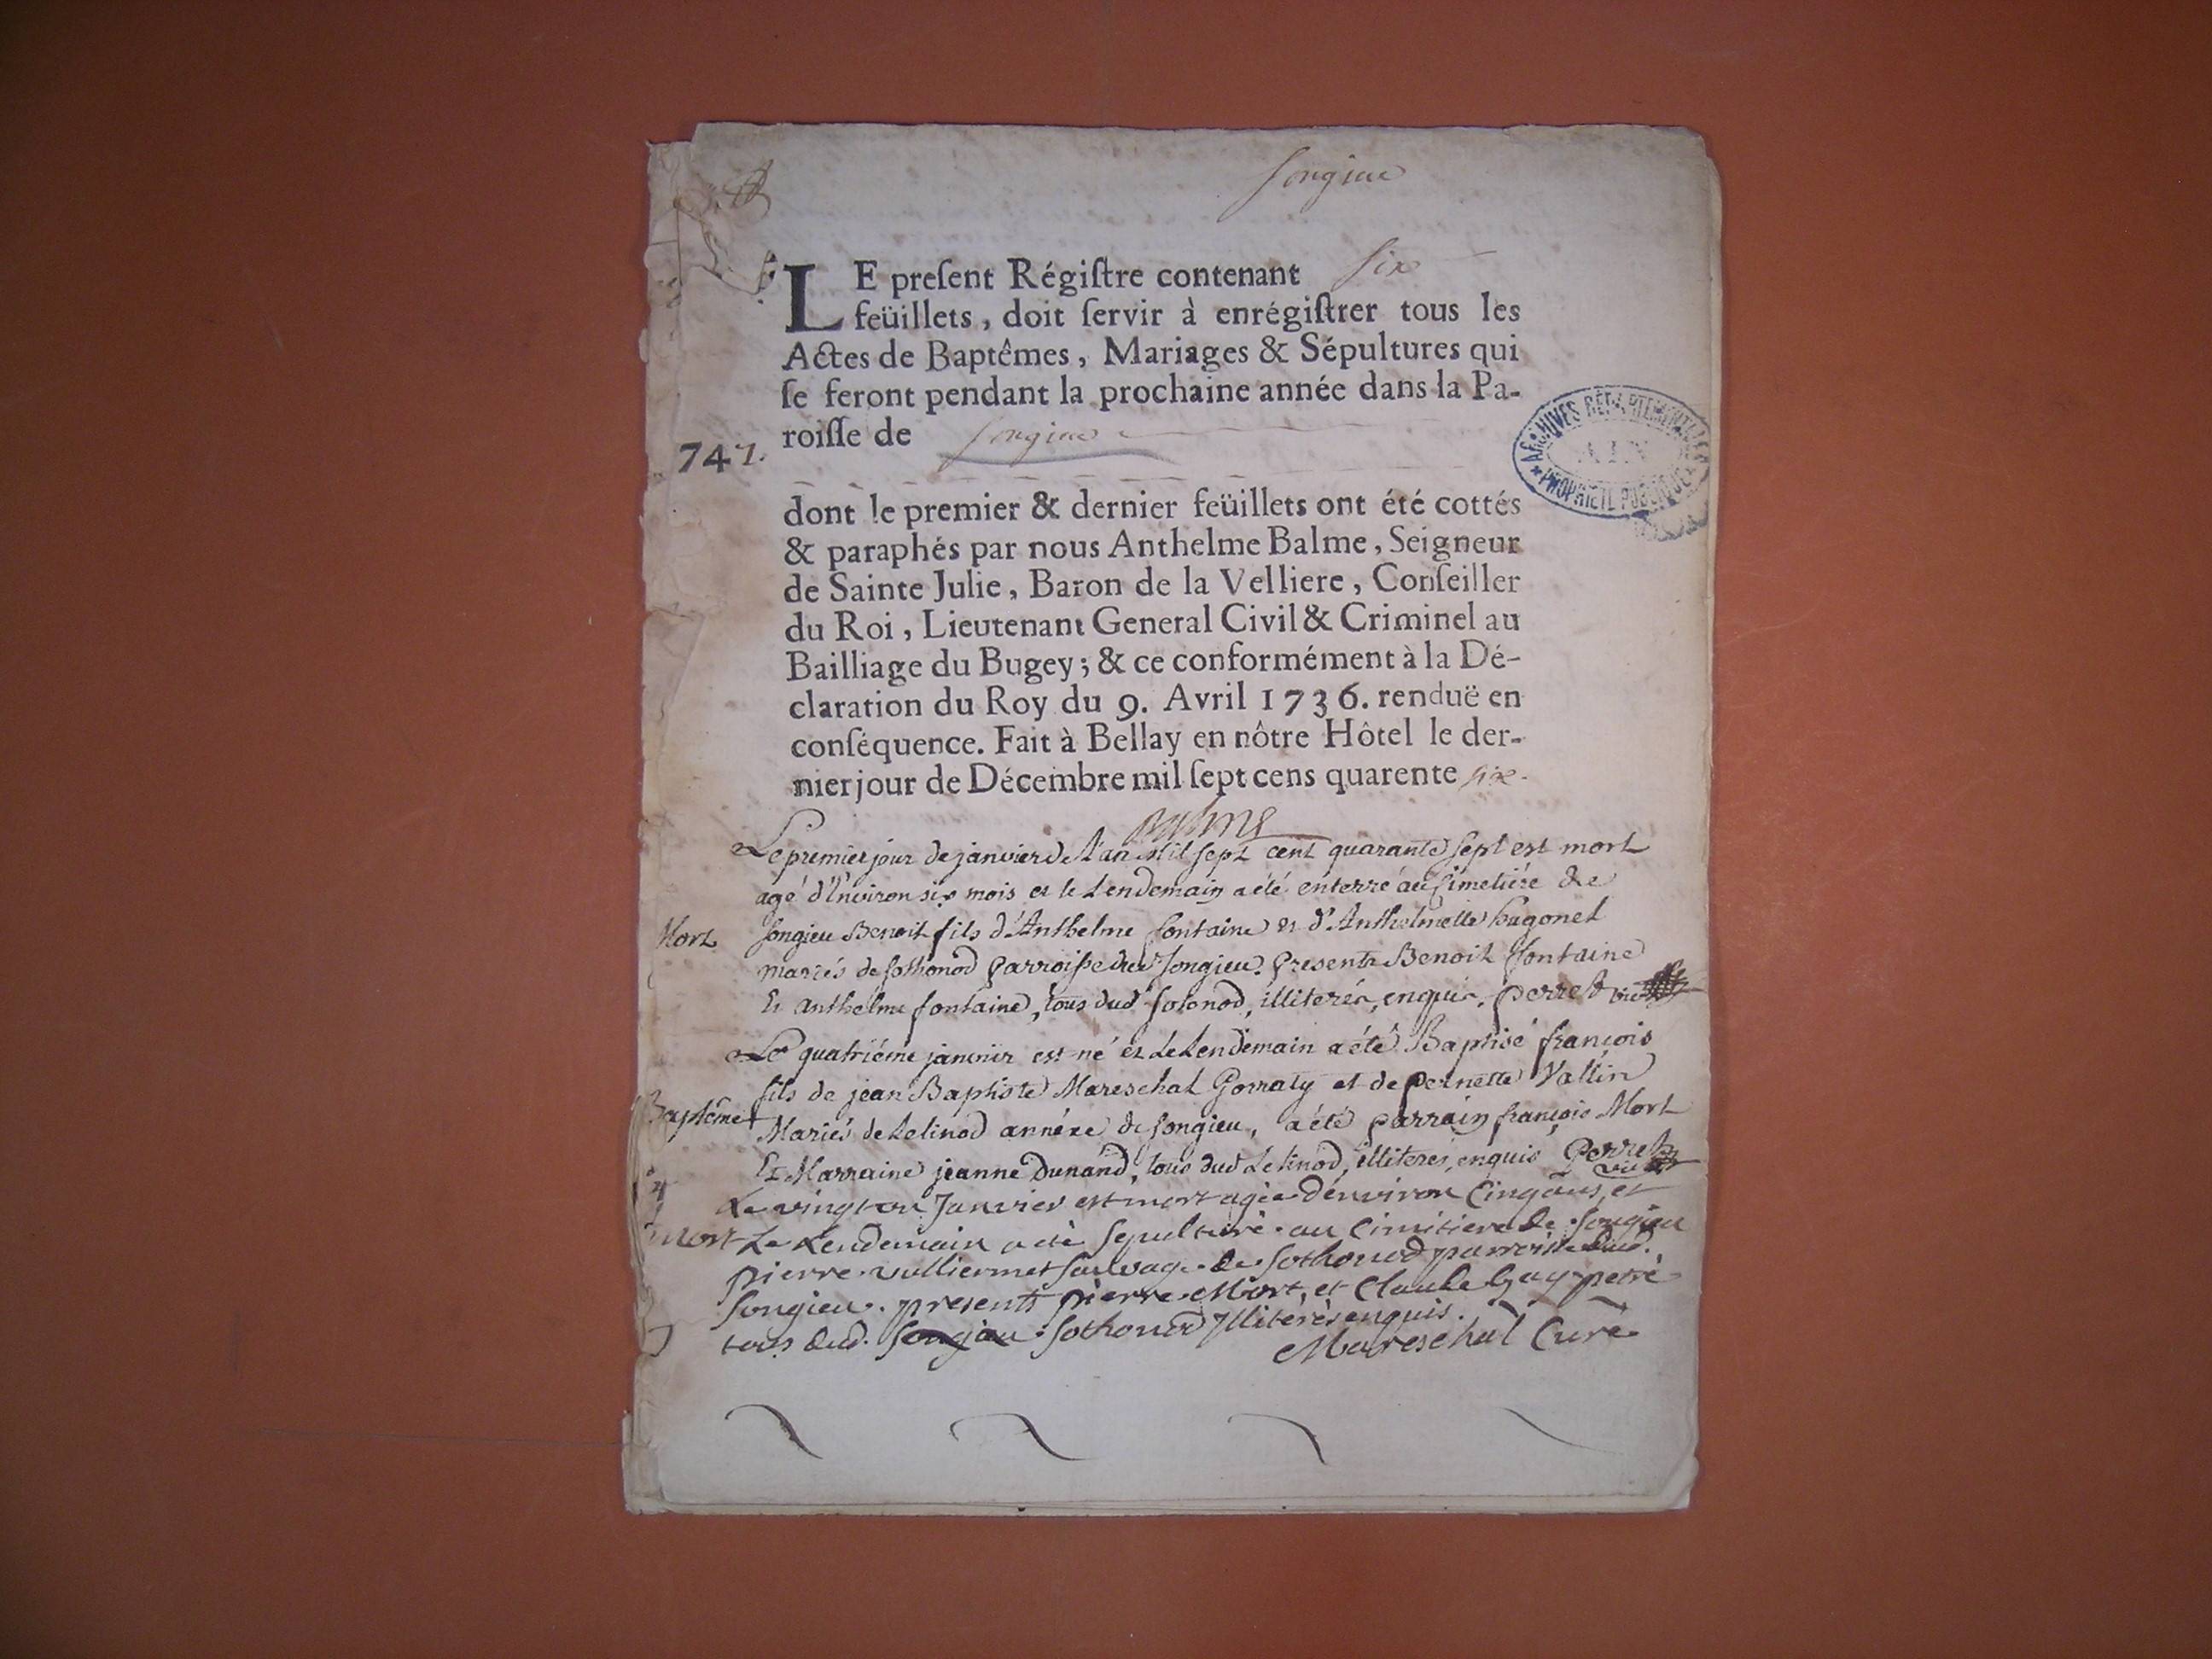 songieu
LE preſent Régiſtre contenant six
feüillets, doit ſervir à enrégiſtrer tous les
Actes de Baptêmes, Mariages & Sépultures qui
ſe feront pendant la prochaine année dans la Pa-
roiſſe de songieu
747.
dont le premier & dernier feüillets ont été cottés
& paraphés par nous Anthelme Balme, Seigneur
de Sainte Julie, Baron de la Velliere, Conſeiller
du Roi, Lieutenant General Civil & Criminel au
Bailliage du Bugey; & ce conformément à la Dé-
claration du Roy du 9. Avril 1736. renduë en
conſéquence. Fait à Bellay en nôtre Hôtel le der-
nier jour de Décembre mil ſept cens quarente six.
ARCHIVES DÉPARTEMENTALES
AIN
PROPRIÉTÉ PUBLIQUE
Balme
Le premier jour de janvier de l'an Mil sept cent quarante sept est mort
agé d'Environ six mois et le Lendemain a été enterré au simetiére de
Mort songieu Benoit fils d'Anthelme fontaine et d'Anthelmette hugonet
mariés de sothonod parroisse de songieu. presents Benoit fontaine
Et anthelme fontaine, tous dud sotonod, illiterés, enquis. perret vic
Le quatriéme janvier est né et Le Lendemain a été Baptisé françois
fils de jean Baptiste Mareschal Gorraty et de pernette Vallin
Baptême Mariés de Lelinod annéxe de songieu, a été parrain françois Mort
Et Marraine jeanne Dunand, tous dud Lelinod, illiterés, enquis Perret
vic
Le vingt un Janvier est mort agée d'environ Cinq ans, et
mort Le Lendemain a été sepulturé au Cimitiere de songieu
pierre vulliermet sauvage de sothonod parroisse dud.
songieu. presents pierre Mort, et Claude Gay petré
tous dud. songieu sothonod Illitérés enquis.
Mareschal Curé